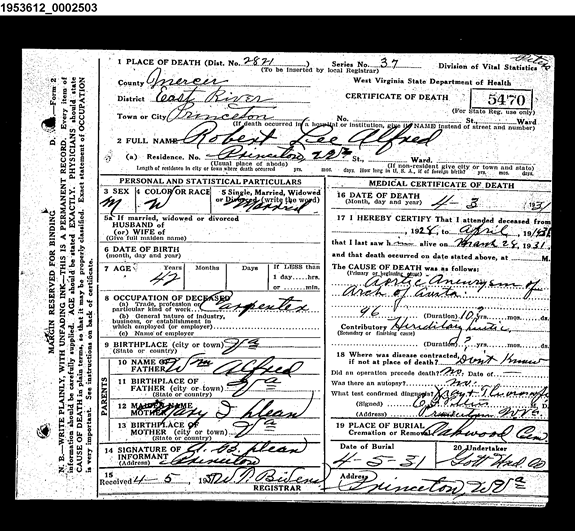 1953612_0002503
1 PLACE OF DEATH (Dist. No. 2821)
(To be inserted by local Registrar)
Series No. 37
Division of Vital Statistics
County Mercer
West Virginia State Department of Health
District East River
CERTIFICATE OF DEATH
5470
(For State Reg. use only)
Town or City Princeton No. St., Ward
(If death occurred in a hospital or institution, give its NAME instead of street and number)
2 FULL NAME Robert Lee Alfred
(a) Residence. No. Princeton W Va St., Ward.
(Usual place of abode) (If non-resident give city or town and state)
Length of residence in city or town where death occurred yrs. mos. days. How long in U. S. A., if of foreign birth? yrs. mos. days.
PERSONAL AND STATISTICAL PARTICULARS
3 SEX M
4 COLOR OR RACE W
5 Single, Married, Widowed or Divorced (write the word) Married
5a If married, widowed or divorced
HUSBAND of
(or) WIFE of
(Give full maiden name)
6 DATE OF BIRTH
(month, day and year)
7 AGE Years Months Days If LESS than
42
1 day....hrs.
or....min.
8 OCCUPATION OF DECEASED
(a) Trade, profession or
particular kind of work Carpenter
(b) General nature of industry,
business, or establishment in
which employed (or employer)
(c) Name of employer
9 BIRTHPLACE (city or town) Va
(State or country)
PARENTS
10 NAME OF FATHER Wm Alfred
11 BIRTHPLACE OF FATHER (city or town) Va
(State or country)
12 MAIDEN NAME MOTHER
13 BIRTHPLACE OF MOTHER (city or town) Va
(State or country)
14 SIGNATURE OF INFORMANT
(Address) Princeton
15
Received 4-5, 19
REGISTRAR
MEDICAL CERTIFICATE OF DEATH
16 DATE OF DEATH
(Month, day and year) 4-3 1931
17 I HEREBY CERTIFY That I attended deceased from
1928, to April, 1931
that I last saw h alive on March 28, 1931
and that death occurred on date stated above, at M.
The CAUSE OF DEATH was as follows:
(Primary beginning) Aortic Aneurysm of
Arch of
96 (Duration) 10? yrs. mos. ds.
Contributory
(Secondary or finishing cause)
? yrs. mos. ds.
18 Where was disease contracted,
if not at place of death? Don't Know
Did an operation precede death? No. Date of
Was there an autopsy? no.
What test confirmed diagnosis?
(Signed) M. D.
(Address) Princeton W Va
19 PLACE OF BURIAL
Cremation or Removal Oakwood Cem
Date of Burial
4-5-31
20 Undertaker
Address Princeton W Va
MARGIN RESERVED FOR BINDING
D. Form 2
N. B.—WRITE PLAINLY, WITH UNFADING INK—THIS IS A PERMANENT RECORD. Every item of
information should be carefully supplied. AGE should be stated EXACTLY. PHYSICIANS should state
CAUSE OF DEATH in plain terms, so that it may be properly classified. Exact statement of OCCUPATION
is very important. See instructions on back of certificate.